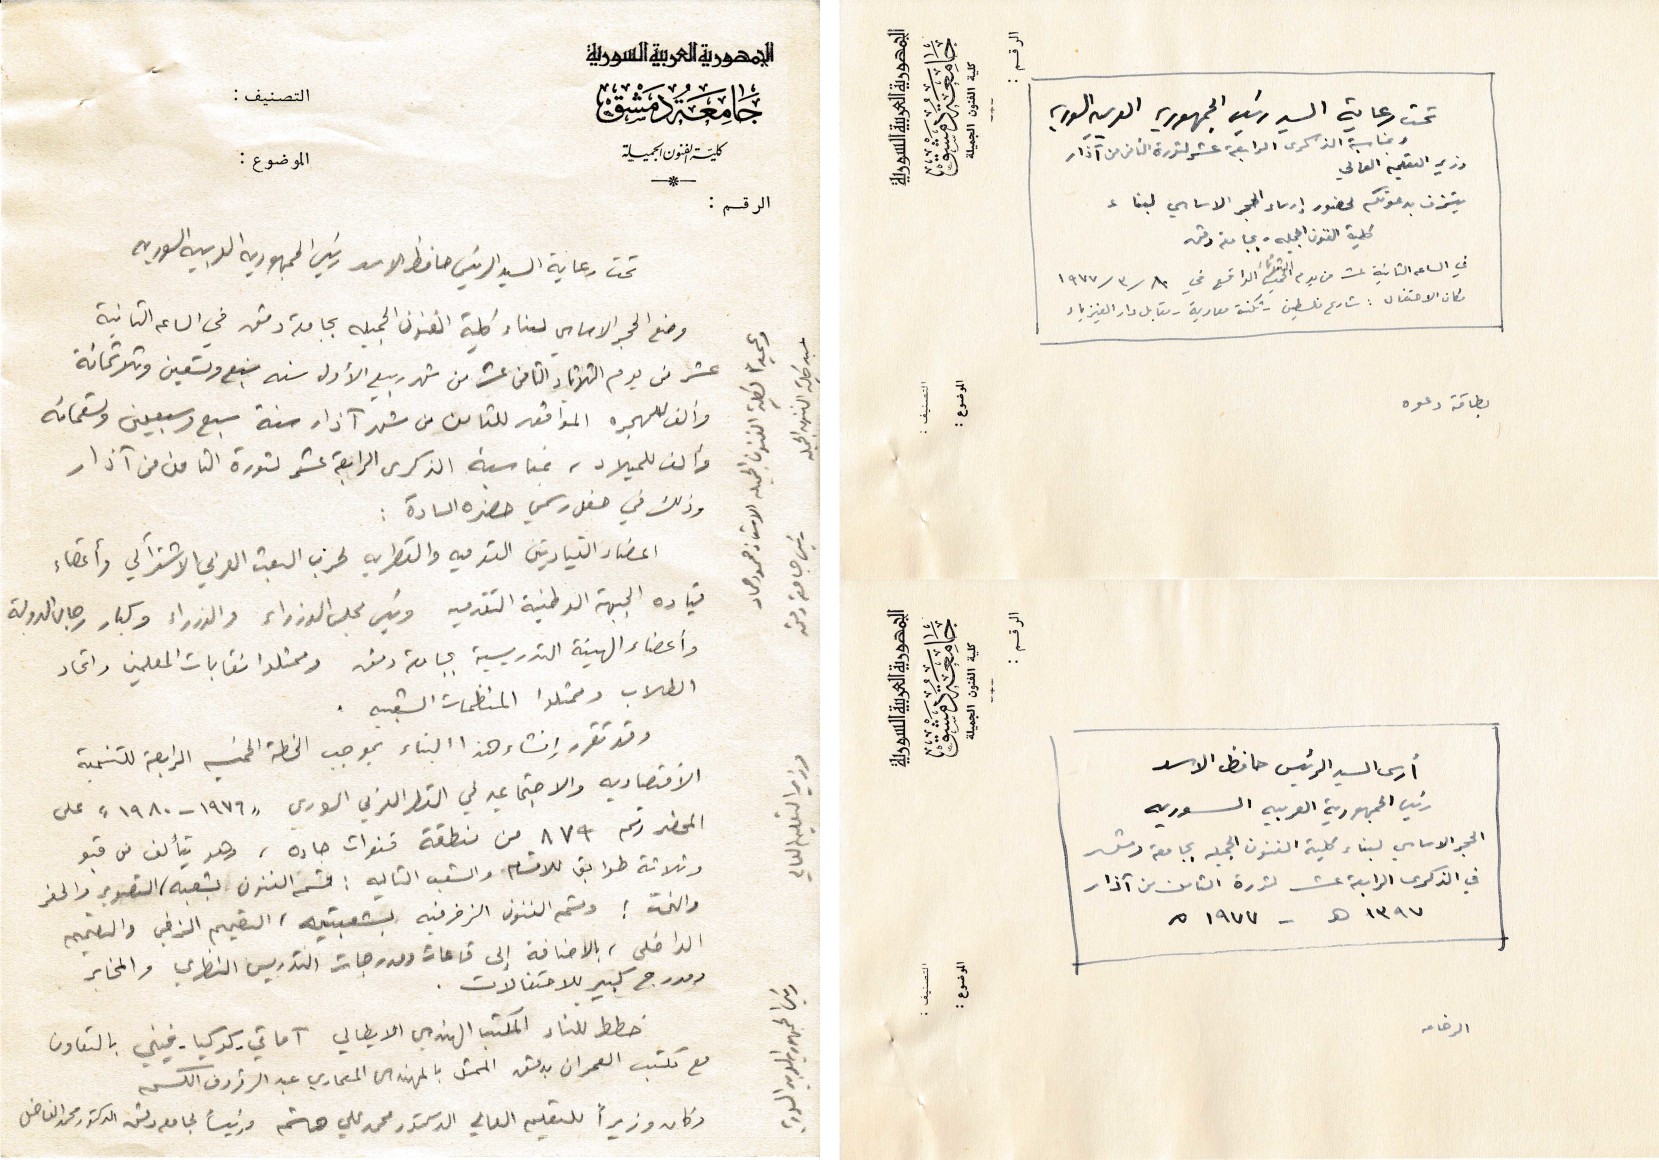 الجمهورية العربية السورية
جامعة دمشق
كلية الفنون الجميلة
التصنيف :
الموضوع :
الرقم :
تحت رعاية السيد الرئيس حافظ الاسد رئيس الجمهورية العربية السورية
وضع الحجر الاساسي لبناء كلية الفنون الجميله بجامعة دمشق في الساعه الثانية
عشر من يوم الثلاثاء الثامن عشر من شهر ربيع الأول سنه سبع وتسعين وثلاثمائة
وألف للهجره الموافق للثامن من شهر آذار سنة سبع وسبعين وتسعمائه
وألف للميلاد ، بمناسبة الذكرى الرابعة عشر لثورة الثامن من آذار
وذلك في حفل رسمي حضره السادة :
اعضاء القيادتين القوميه والقطريه لحزب البعث العربي الاشتراكي وأعضاء
قياده الجبهة الوطنية التقدميه ورئيس مجلس الوزراء والوزراء وكبار رجال الدولة
وأعضاء الهيئة التدريسية بجامعة دمشق وممثلوا نقابات المعلمين واتحاد
الطلاب وممثلوا المنظمات الشعبيه .
وقد تقرر إنشاء هذا البناء بموجب الخطة الخمسيه الرابعة للتنمية
الاقتصاديه والاجتماعيه في القطر العربي السوري " ١٩٧٦ - ١٩٨٠ " على
المحضر رقم ٨٧٩ من منطقة قنوات جاده ، وهو يتألف من قبو
وثلاثة طوابق للاقسام والشعب التاليه : قسم الفنون بشعبه / التصوير والحفر
والنحت ؛ وقسم الفنون الزخرفيه بشعبتيه / التصميم الزخرفي والتصميم
الداخلي ، بالاضافة إلى قاعات ومدرجات التدريس النظري والمخابر
ومدرج كبير للاحتفالات .
خطط للبناء المكتب الهندسي الايطالي بالتعاون
مع مكتب العمران بدمشق الممثل بالمهندس المعماري عبد الرؤوف الكسم
وكان وزيراً للتعليم العالي الدكتور محمد علي هاشم ورئيساً لجامعة دمشق الدكتور محمد الفاضل
وعميداً لكلية الفنون الجميله الاستاذ محمود حماد
عميد كلية الفنون الجميله
رئيس جامعة دمشق
وزير التعليم العالي
رئيس الجمهورية العربية السورية
الجمهورية العربية السورية
جامعة دمشق
كلية الفنون الجميلة
الرقم :
التصنيف :
الموضوع :
تحت رعاية السيد رئيس الجمهورية العربيه السوريه
وبمناسبة الذكرى الرابعة عشر لثورة الثامن من آذار
وزير التعليم العالي
يتشرف بدعوتكم لحضور إرساء الحجر الاساسي لبناء
كلية الفنون الجميله بجامعة دمشق
في الساعه الثانية عشر من يوم الثلاثاء الواقع في ٨ / ٣ / ١٩٧٧
مكان الاحتفال : شارع فلسطين - ثكنة معاوية - مقابل دار
بطاقة دعوه
الجمهورية العربية السورية
جامعة دمشق
كلية الفنون الجميلة
الرقم :
التصنيف :
الموضوع :
أرسى السيد الرئيس حافظ الاسد
رئيس الجمهورية العربيه السوريه
الحجر الاساسي لبناء كلية الفنون الجميله بجامعة دمشق
في الذكرى الرابعة عشر لثورة الثامن من آذار
١٣٩٧ هـ - ١٩٧٧ م
الرخامه